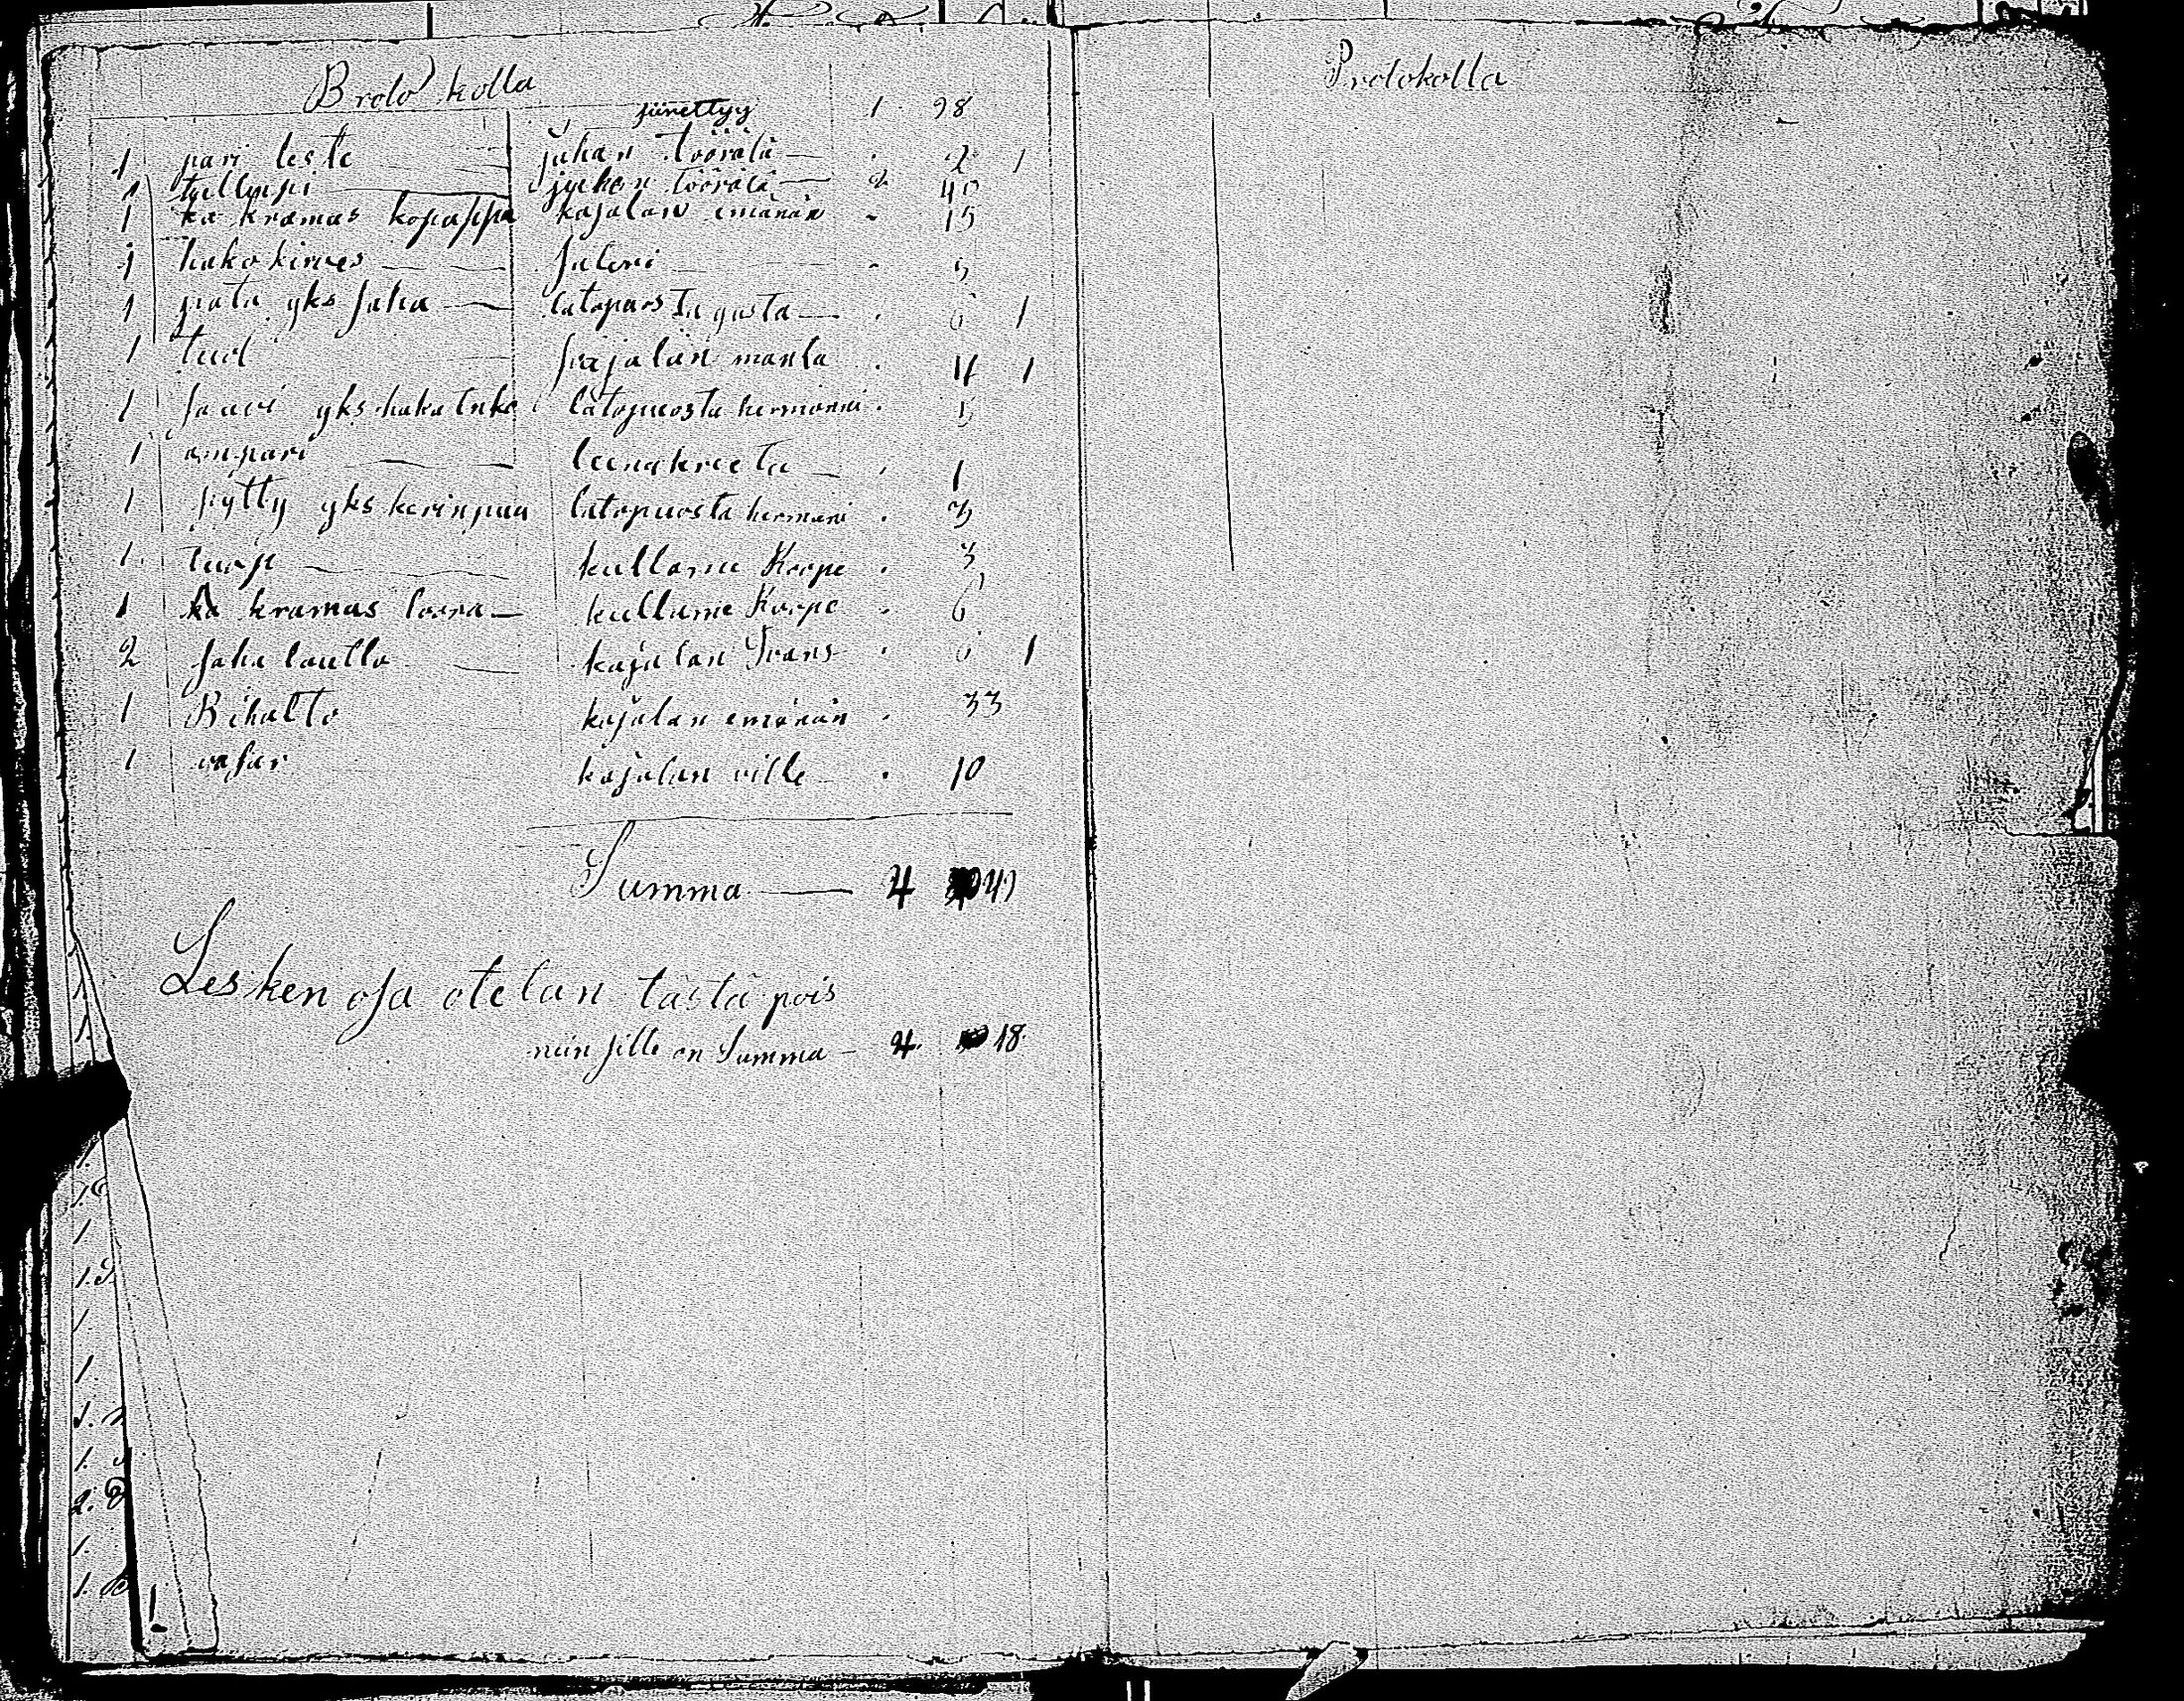 Broto kolla
siirettyy 1 98
1 pari leste juhan töörälä . 2 1
1 tyllynpi juhan töörälä 2 40
1 ka kramas kopappa kajalan emänän . 15
1 hako kirves . 5
1 pata yks saha latopuosta gusta . 6 1
1 tuol pajalan manla . 4 1
1 saavi yks haka latopuosta hermanni . 5
1 ampari leenakreeta . 1
1 pytty yks kerinpuu latopuosta hermanni . 3
1 kullame Koope . 3
1 ka kramas loora kullame Koope . 6
2 saha lautta kajalan Frans . 6 1
1 kajalan emänän . 33
1 vasar kajalan ville . 10
Summa 4 49
Lesken osa otetan tästä pois
niin sille on Summa 4. 18.
Protokolla